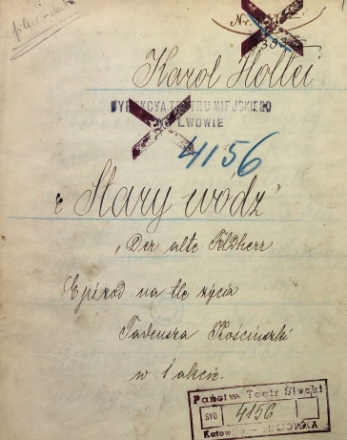 Nr.
Karol Holtei
DYREKCYA TEATRU MIEJSKIEGO
LWOWIE
4156
"Stary wódz"
"Der alte Feldherr
Epizod na tle życia
Tadeusza Kościuszki
w 1 akcie.
Państw. Teatr Śląski
SYG 4156
Katow